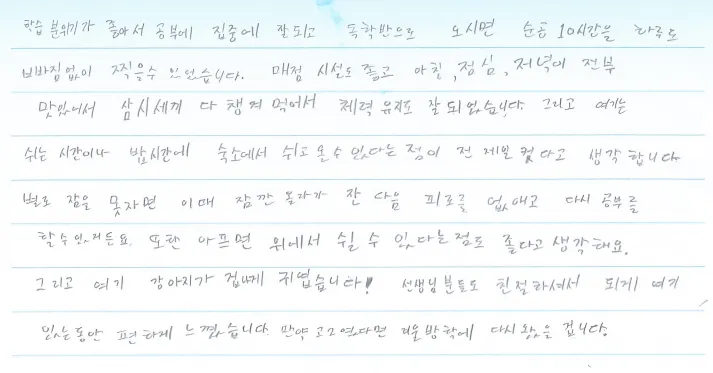 학습 분위기가 좋아서 공부에 집중에 잘되고 독학반으로 오시면 순공 10시간을 하루도
빠짐없이 찍을수 있었습니다. 매점 시설도 좋고 아침, 점심, 저녁이 전부
맛있어서 삼시세끼 다 챙겨 먹어서 체력 유지도 잘 되었습니다. 그리고 여기는
쉬는 시간이나 밥시간에 숙소에서 쉬고 올수 있다는 점이 전 제일 컸다고 생각합니다
별로 잠을 못자면 이때 잠깐 올라가 잔 다음 피로를 없애고 다시 공부를
할수 있거든요. 또한 아프면 위에서 쉴 수 있다는점도 좋다고 생각해요.
그리고 여기 강아지가 겁나게 귀엽습니다! 선생님분들도 친절하셔서 되게 여기
있는동안 편하게 느꼈습니다. 만약 고2였다면 겨울방학에 다시 왔을 겁니다.